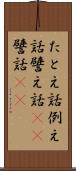 たとえ話例え
話譬え話
譬話